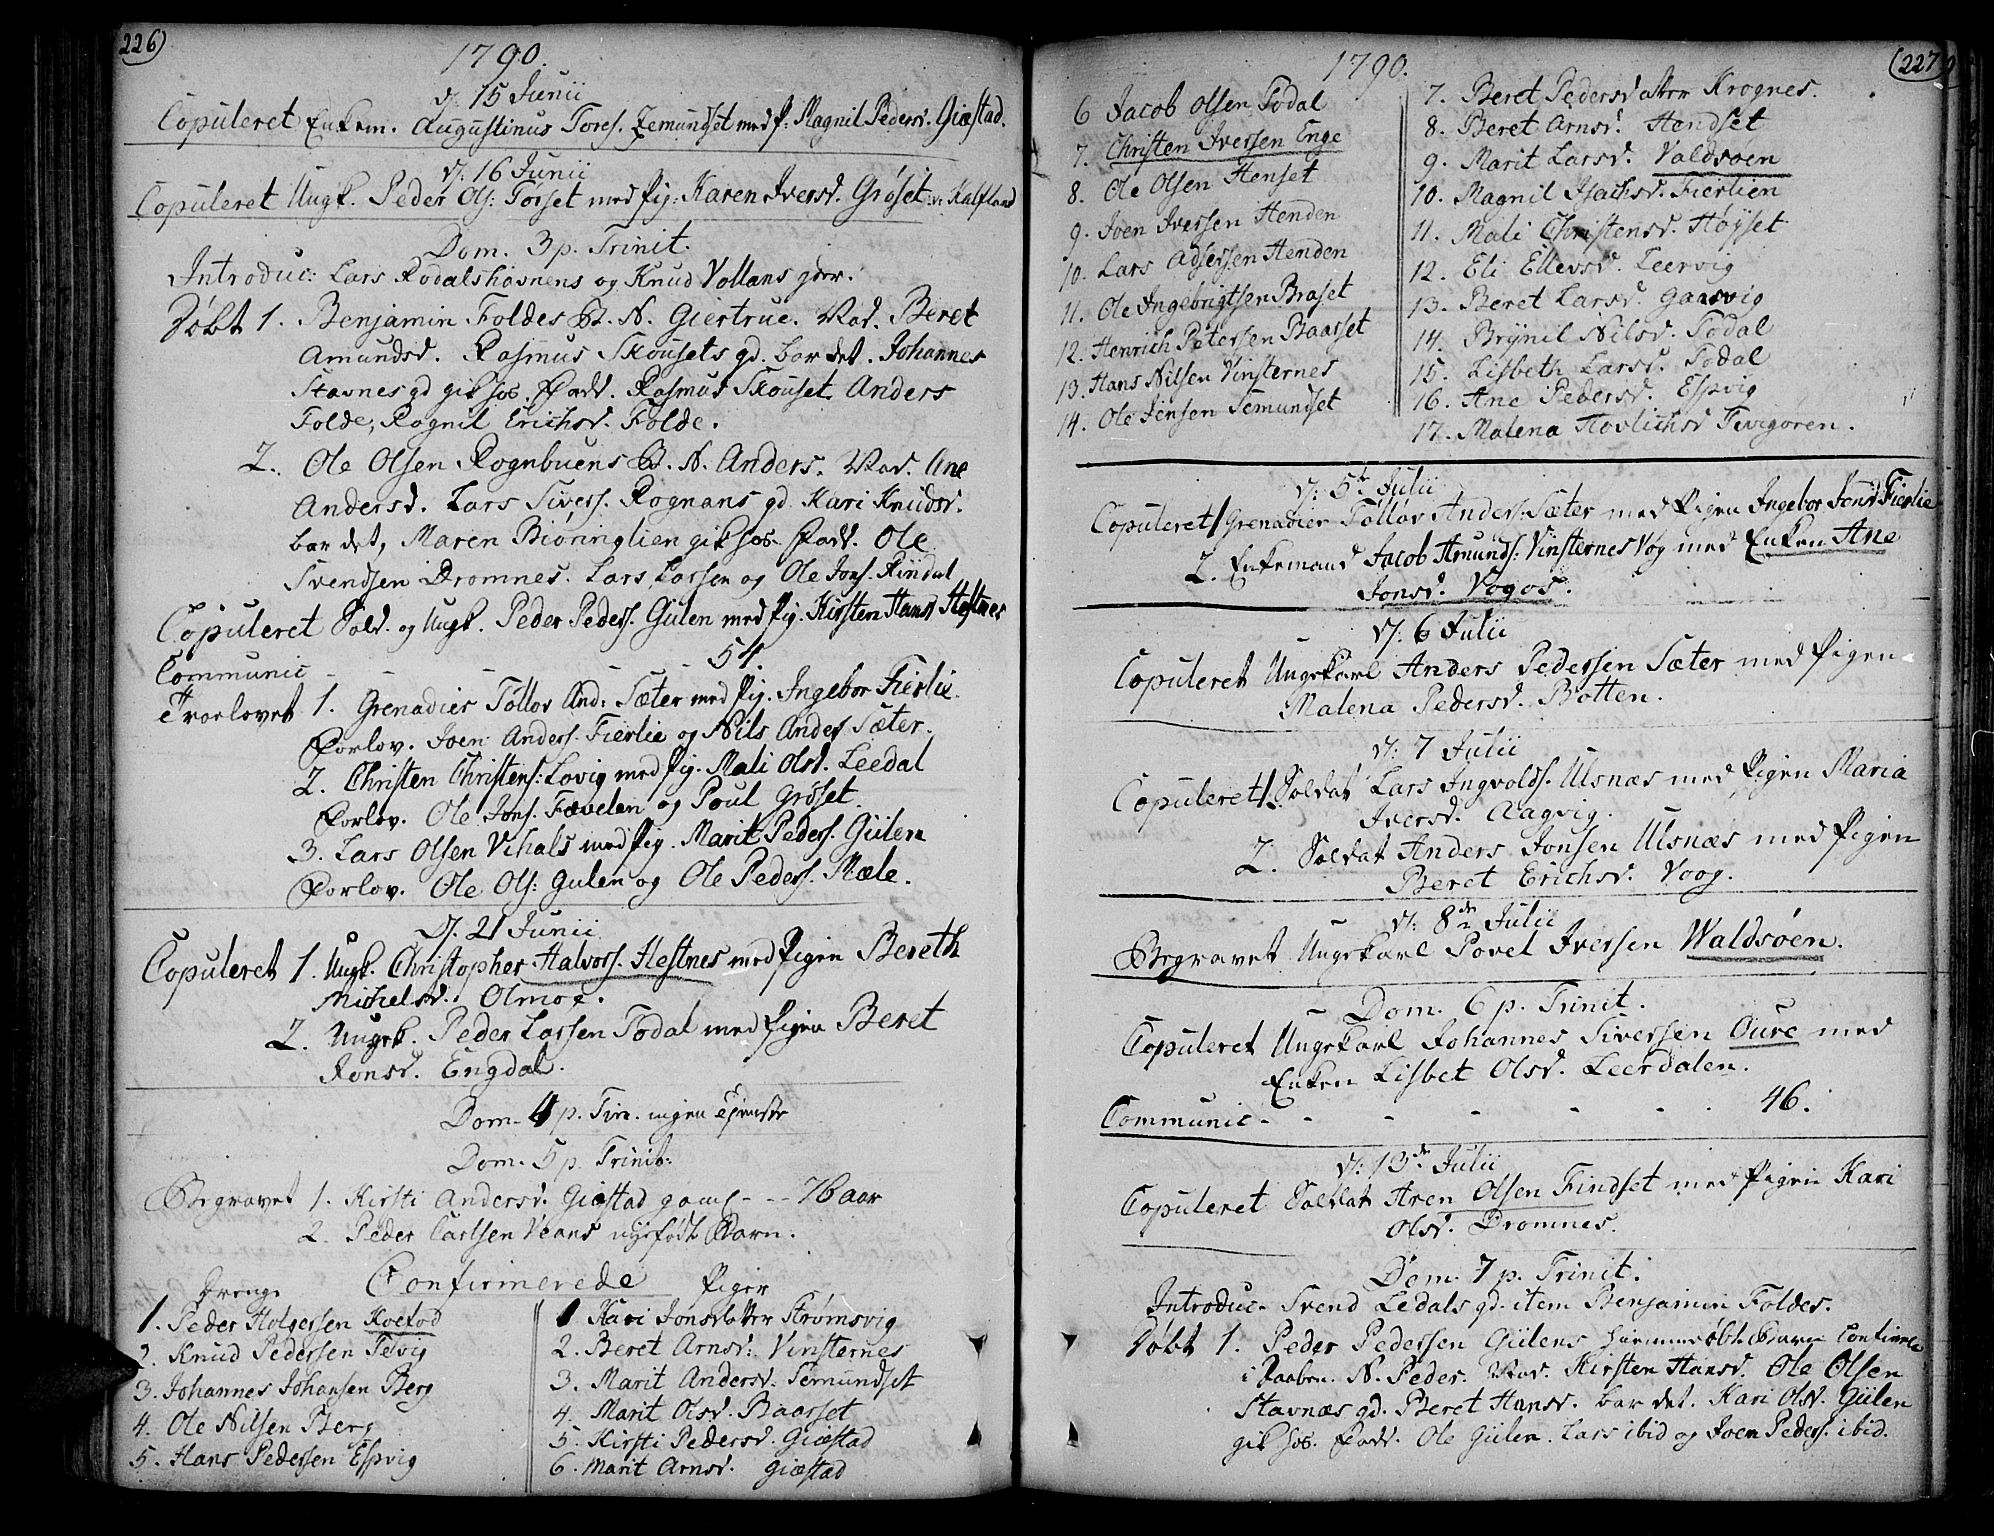 226)
1790.
d: 15 Junii
Copuleret Enkem. Augustinus Tores. Zemundset med P: Magnil Pedersd. Giæstad.
d: 16 Junii
Copuleret Ungk. Peder Ols: Torset med Pig: Karen Iversd. Grøset v: Kalfland
Dom. 3 p. Trinit.
Introduc: Lars Rodalshavnens og Knud Vollans gdr.
Døbt 1. Benjamin Foldes B. N. Giertrue. Mod. Beret
Amundsd. Rasmus Skousets gd. bar det. Johannes
Stavnes gd gik hos. Fadd. Rasmus Skouset, Anders
Folde, Ragnil Erichsd. Folde.
2. Ole Olsen Rognbuens B. N. Anders. Mod. Ane
Andersd. Lars Sivers. Rognans gd Kari Knudsd.
bar det, Maren Biøringlien gik hos. Fadd. Ole
Svendsen Dromnes. Lars Larsen og Ole Jons. Rindal
Copuleret Sold. og Ungk. Peder Peders. Gulen med Pig. Kirsten Hansd Hestnes
Communic - - - 54.
Troelovet 1. Grenadier Tollov And: Sæter med Pig. Ingebor Fierlie.
Forlov. Joen Anders. Fierlie og Nils Anders Sæter.
2. Christen Christens: Lovig med Pig. Mali Olsd. Leedal
Forlov. Ole Jons. Fævelen og Poul Grøset.
3. Lars Olsen Vihals med Pig. Marit Peders. Gulen
Forlov. Ole Ols: Gulen og Ole Peders. Mæle.
d. 21 Junii
Copuleret 1. Ungk. Christopher Halvors. Hestnes med Pigen Bereth
Michelsd. Olmoe.
2. Ungk. Peder Larsen Todal med Pigen Beret
Jonsd. Engdal.
Dom. 4 p. Trin. ingen tieneste
Dom. 5 p. Trinit:
Begravet 1. Kirsti Andersd. Giæstad gaml - - 76 aar
2. Peder Carlsen Veans nyefødt Barn.
Drenge Confirmerede Piger
1. Peder Holgersen Koefod
2. Knud Pedersen Tevig
3. Johannes Johansen Berg
4. Ole Nilsen Berg
5. Hans Pedersen Espvig
1 Kari Jonsdatter Strømsvig
2. Beret Arnsd: Vinsternes
3. Marit Andersd. Semundset
4. Marit Olsd. Baarset
5. Kirsti Pedersd. Giæstad
6. Marit Arnsd. Giæstad
(227
1790.
6 Jacob Olsen Todal
7. Christen Iversen Enge
8. Ole Olsen Henset
9. Joen Iversen Henden
10. Lars Adsersen Henden
11. Ole Ingebrigtsen Braset
12. Henrich Petersen Baarset
13. Hans Nilsen Vinsternes
14. Ole Jensen Semundset
7. Beret Pedersdatter Krognes.
8. Beret Arnsd. Hendset
9. Marit Larsd. Valdsøen
10. Magnil Isachsd. Fierlien
11. Mali Christensd. Høyset
12. Eli Ellevsd. Leervig
13. Beret Larsd. Gaasvig
14. Brynil Nilsd. Todal
15. Lisbeth Larsd. Todal
16. Ane Pedersd. Espvig
17. Malena Hovlichsd Tevigoren.
d: 5te Julii
Copuleret 1 Grenadier Tollov Anders: Sæter med Pigen Ingebor Jonsd Fierlie
2. Enkemand Jacob Amunds: Vinsternes Vog med Enken Ane
Jonsd. Vogos.
d: 6 Julii
Copuleret Ungekarl Anders Pedersen Sæter med Pigen
Malena Pedersd. Botten.
d: 7 Julii
Copuleret 1. Soldat Lars Ingvolds. Ulsnæs med Pigen Maria
Iversd. Aagvig.
2. Soldat Anders Jonsen Ulsnæs med Pigen
Beret Erichsd. Voog.
d: 8de Julii
Begravet Ungekarl Povel Iversen Waldsøen.
Dom. 6 p. Trinit.
Copuleret Ungekarl Johannes Siversen Oure med
Enken Lisbet Olsd. Leerdalen.
Communic - - - - - 46.
d: 13de Julii
Copuleret Soldat Aren Olsen Findset med Pigen Kari
Olsd. Dromnes.
Dom. 7 p. Trinit.
Introduc. Svend Ledals gd. item Benjamin Foldes.
Døbt 1. Peder Pedersen Gulens hiemmedøbt Barn
i Daaben. N. Peder. Mod. Kirsten Hansd. Ole Olsen
Stavnæs gd. Beret Hansd. bar det. Kari Olsd. Gulen
gik hos. Fadd. Ole Gulen. Lars ibid og Joen Peders. ibid.